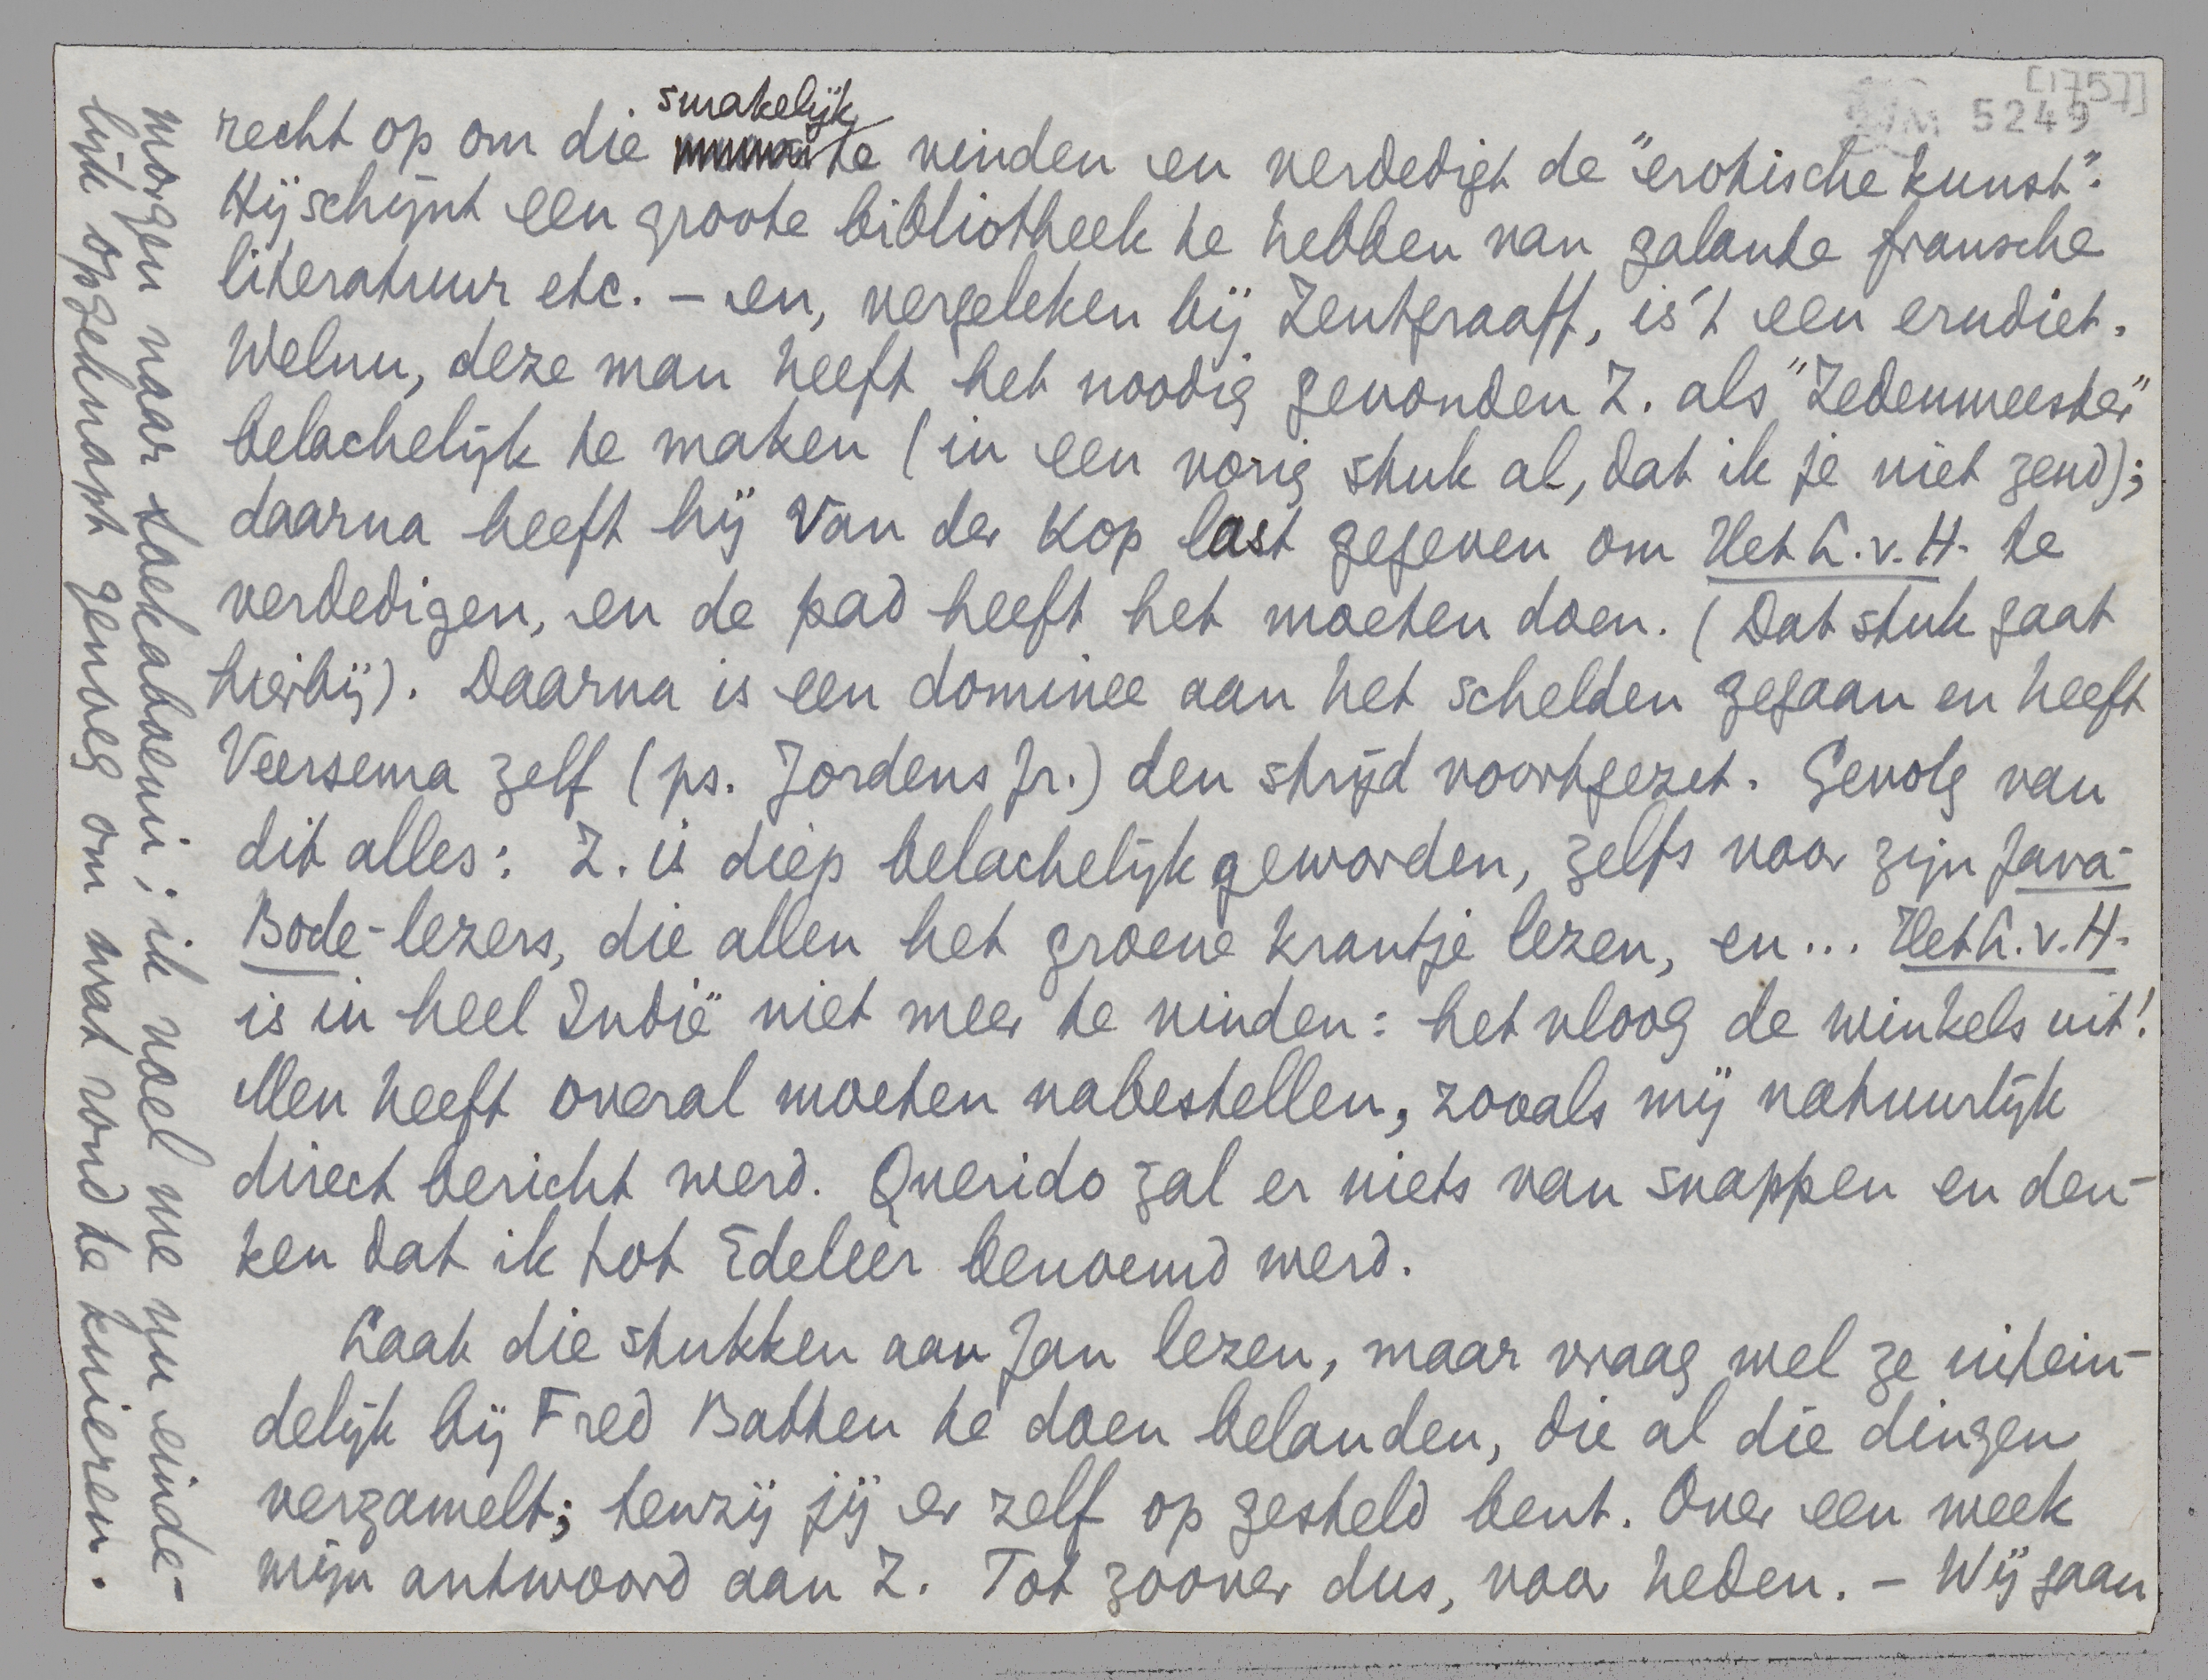 [1757]
5249
recht op om die smakelijk te vinden en verdedigt de "erotische kunst".
Hij schijnt een groote bibliotheek te hebben van galante fransche
literatuur etc. – en, vergeleken bij Zentgraaff, is 't een erudiet.
Welnu, deze man heeft het noodig gevonden Z. als "Zedenmeester"
belachelijk te maken (in een vorig stuk al, dat ik je niet zend);
daarna heeft hij Van der Kop last gegeven om Het L.v.H. te
verdedigen, en de pad heeft het moeten doen. (Dat stuk gaat
hierbij). Daarna is een dominee aan het schelden gegaan en heeft
Veersema zelf (ps. Jordens Jr.) den strijd voortgezet. Gevolg van
dit alles: Z. is diep belachelijk geworden, zelfs voor zijn Java-
Bode-lezers, die allen het groene krantje lezen, en... Het L.v.H.
is in heel Indië niet meer te vinden: het vloog de winkels uit!
Men heeft overal moeten nabestellen, zooals mij natuurlijk
direct bericht werd. Querido zal er niets van snappen en den-
ken dat ik tot Edeleer benoemd werd.
Laat die stukken aan Jan lezen, maar vraag wel ze uitein-
delijk bij Fred Batten te doen belanden, die al die dingen
verzamelt; tenzij jij er zelf op gesteld bent. Over een week
mijn antwoord aan Z. Tot zoover dus, voor heden. – Wij gaan
morgen naar Soekaboemi; ik voel me nu einde-
lijk opgeknapt genoeg om wat rond te kuieren.